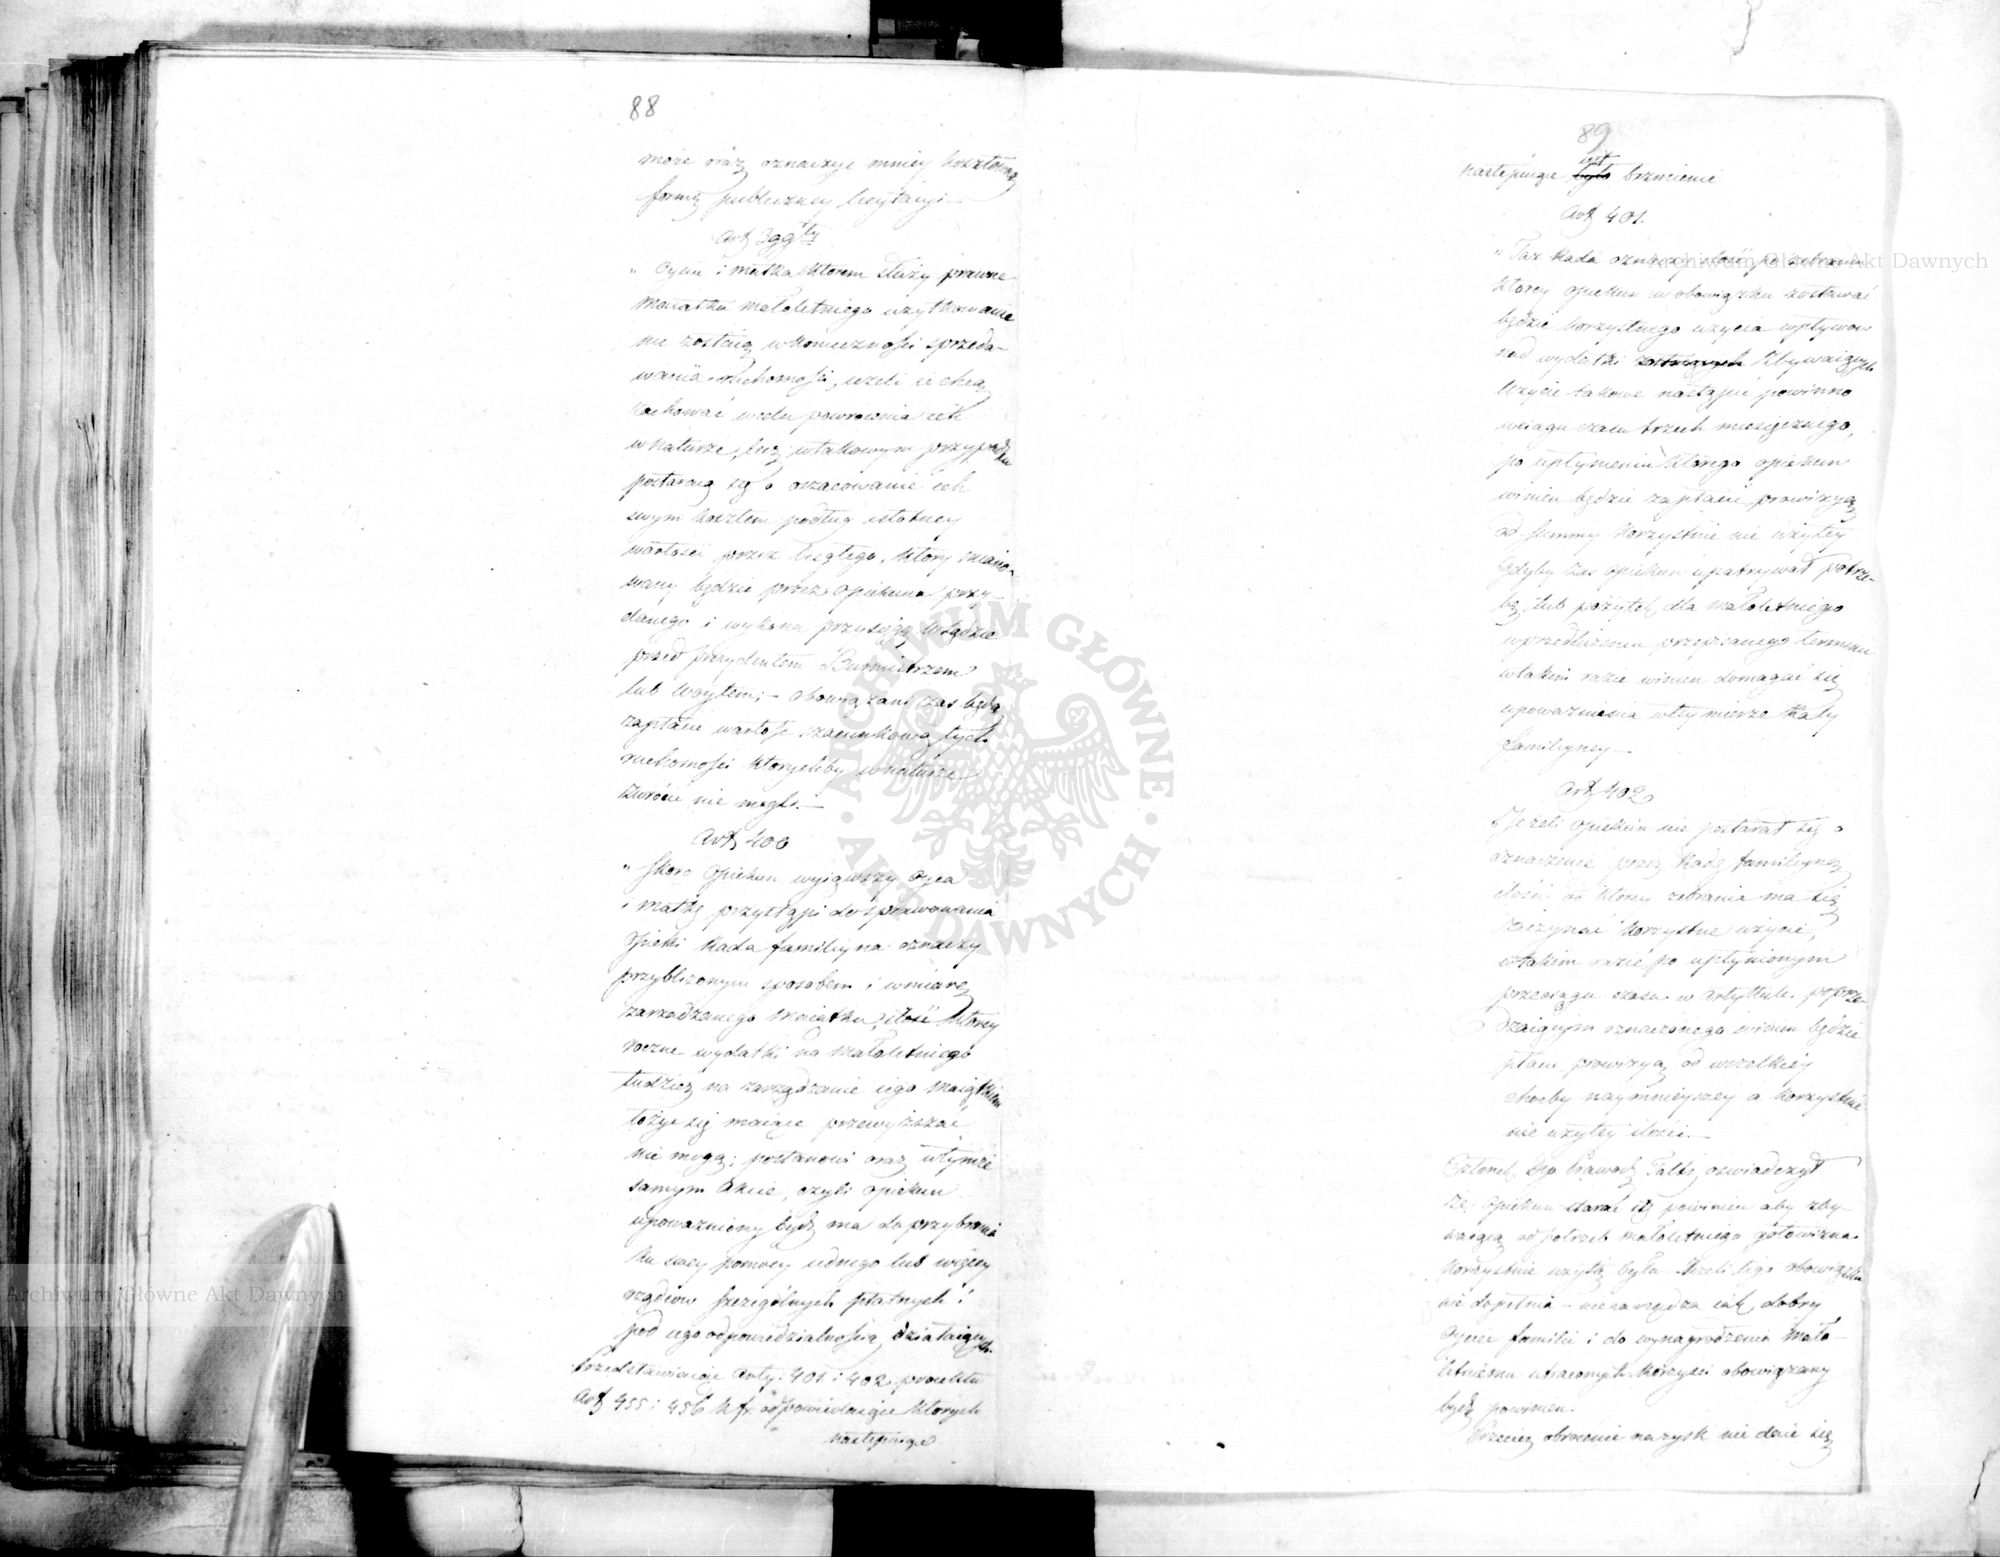 88
może oraz oznaczyć mniey kosztowną
formę publiczney licytacyi
Art 399ty
„ Oyciec i matka którem służy prawne
maiątku małoletniego użytkowanie
nie zostaią w konieczności sprzeda-
wania ruchomości, ieżeli ie chcą
zachować w celu powrócenia ich
w naturze, lecz w takowym przypadku
postaraią się o oszacowanie ich
swym kosztem podług istotney
wartości przez biegłego, który miano-
wany będzie przez opiekuna przy-
danego i wykona przysięgę w Sądzie
przed Prezydentem Burmistrzem
lub Woytem; – obowiązani zaś będą
zapłacić wartość szacunkową tych
ruchomości którychby w naturze
zwrócić nie mogli. –
Art 400
„ Skoro Opiekun wyiąwszy Oyca
i matkę przystąpi do sprawowania
Opieki Rada familiyna oznaczy
przybliżonym sposobem i w miarę
zarządzanego maiątku, ilość którey
roczne wydatki na małoletniego
tudzież na zarządzanie iego maiątkiem
łożyć się maiące przewyższać
nie mogą; postanowi oraz w tymże
samym Akcie, czyli opiekun
upoważniony bydź ma do przybrania
ku swey pomocy iednego lub więcey
rządców szczególnych płatnych i
pod iego odpowiedzialnością działaiących.
Przedstawiciele Arty: 401 i 402 proiektu
Art 455 i 456 K fr. odpowiadaiące których
następuiące
89
następuiące był było brzmienie
Art 401.
„ Taż Rada oznaczy ilość po zebraniu
którey opiekun w obowiązku zostawać
będzie korzystnego użycia wpływów
nad wydatki zostaiących zbywaiących
Użycie takowe nastąpić powinno
w ciągu czasu trzech miesięcznego,
po upłynieniu którego opiekun
winien będzie zapłacić prowizyą
od summy korzystnie nie użytey
Gdyby zaś opiekun upatrywał potrze-
bę lub pożytek dla małoletniego
w przedłużeniu przepisanego terminu
w takim razie winien domagać się
upoważnienia w tey mierze Rady
familiyney –
Art 402
„ Jeżeli opiekun nie postarał się o
oznaczenie przez Radę familiyną
ilości od którey zebrania ma się
zaczynać korzystne użycie,
w takim razie po upłynionym
przeciągu czasu w Artykule poprze-
dzaiącym oznaczonego winien będzie
płacić prowizyą od wszelkiéy
choćby naymnieyszey a korzystnie
nie użytey ilości. –
Członek Dep Prawod. Faltz oświadczył
że opiekun starać się powinien aby zby-
waiąca od potrzeb małoletniego gotowizna
korzystnie użytą była. Jeżeli tego obowiązku
nie dopełnia – nie zarządza iak dobry
Oyciec familii i do wynagrodzenia mało-
letniemu utraconych korzyści obowiązany
bydź powinien.
Przecież obrócenie na zysk nie daie się
Archiwum Główne Akt Dawnych
ARCHIWUM GŁÓWNE AKT DAWNYCH
Archiwum Główne Akt Dawnych